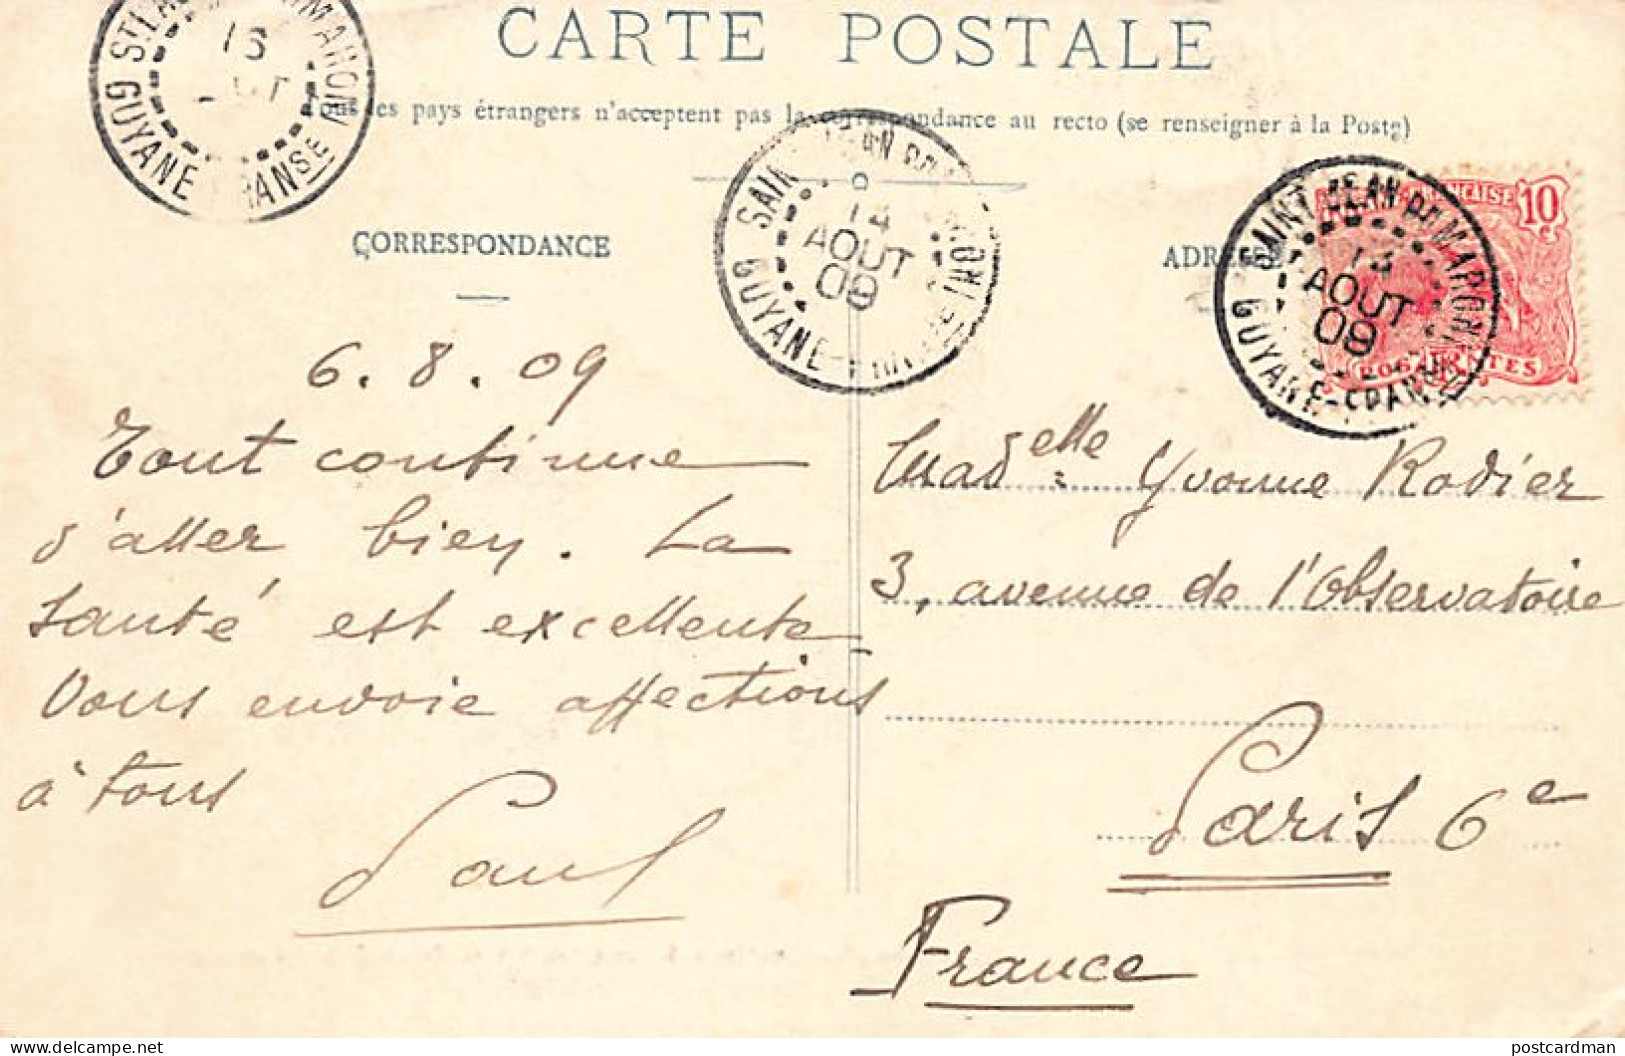 CARTE POSTALE
Tous les pays étrangers n'acceptent pas la correspondance au recto (se renseigner à la Poste)
GUYANE FRANSE
16
SAINT JEAN DU MARONI
14
AOUT
09
GUYANE-FRANSE
SAINT JEAN DU MARONI
14
AOUT
09
GUYANE-FRANSE
10 c
CORRESPONDANCE
ADRESSE
6.8.09
Tout continue
d'aller bien. La
santé est excellente
Vous envoie affections
à tous
Paul
Madelle Yvonne Rodier
3, avenue de l'Observatoire
Paris 6e
France
delcampe.net
postcardman